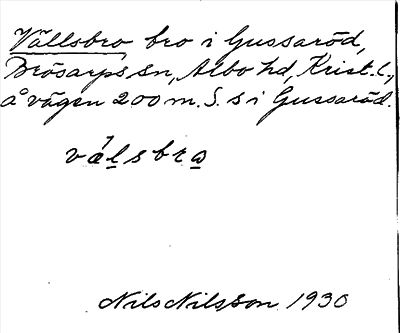 Vällsbro, bro i Gussaröd,
Brösarps sn, Albo hd, Krist. l.,
å vägen 200 m. S. s i Gussaröd.
vα̍lsbra
Nils Nilsson 1930